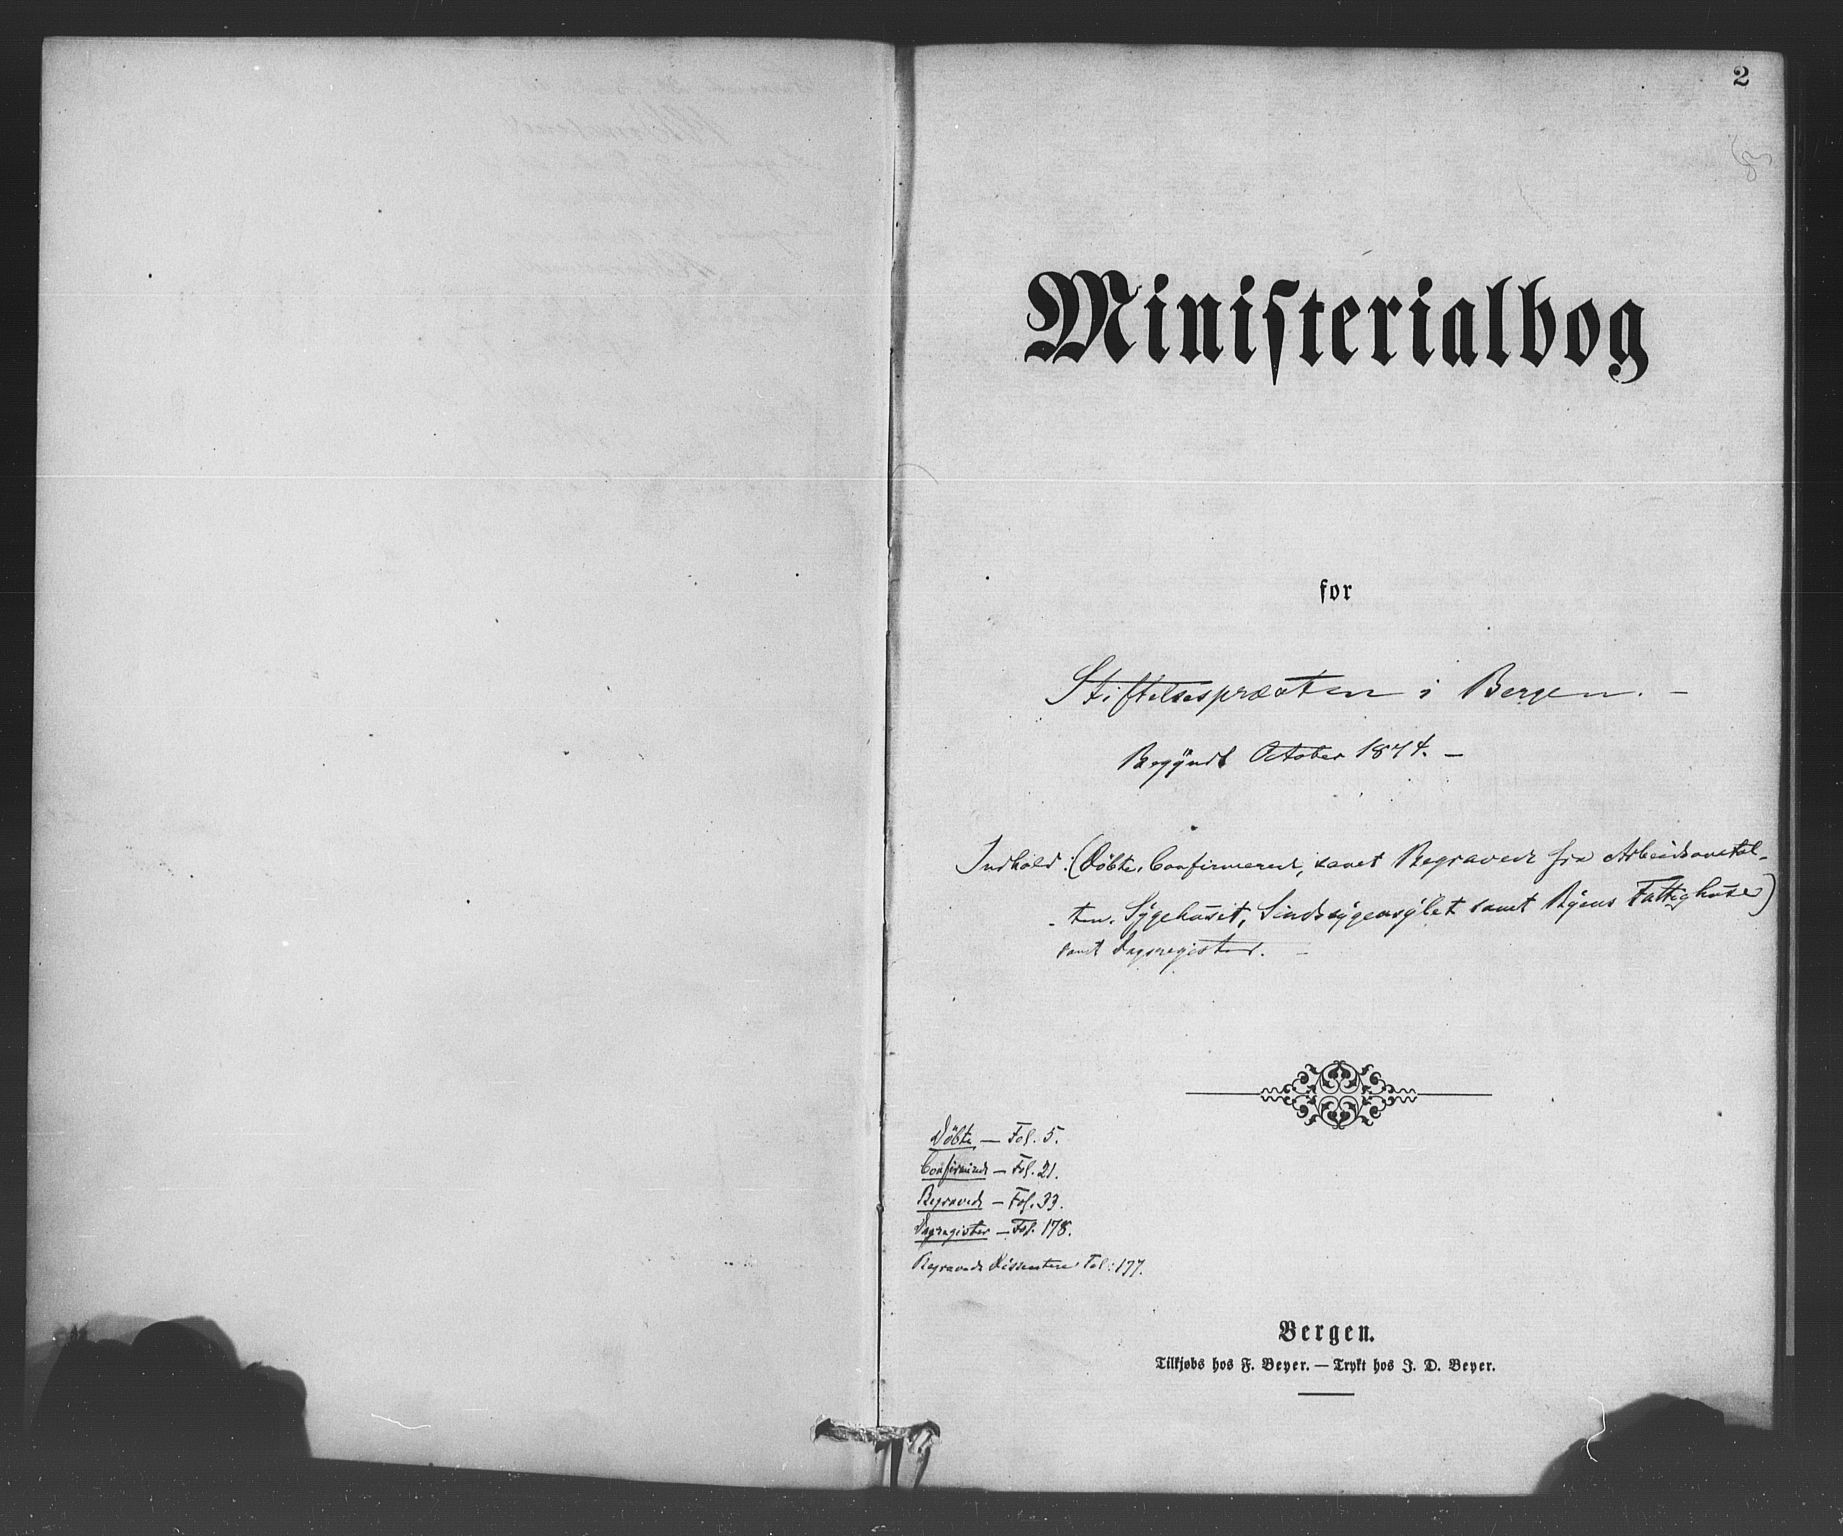 2
Ministerialbog
for
Stiftelsespræsten i Bergen. –
Begÿndt October 1874. –
Indhold: (Døbte, Confirmerede, samt Begravede fra Arbeidsanstal-
-ten, Sÿgehuset, Sindssÿgeasÿlet samt Bÿens Fattighuse)
samt Dagregister. –
Døbte — Fol. 5.
Confirmerede — Fol. 21.
Begravede — Fol. 33.
Dagregister — Fol. 178.
Begravede Dissentere Fol: 177.
Bergen.
Tilkjøbs hos F. Beyer. — Trykt hos J. D. Beyer.